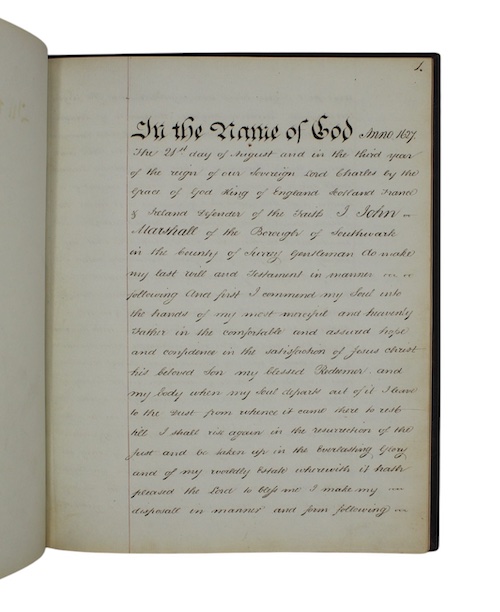 1.
In the Name of God Anno 1627.
The 21st day of August and in the third year
of the reign of our Sovereign Lord Charles by the
Grace of God King of England Scotland France
& Ireland Defender of the Faith I John
Marshall of the Borough of Southwark
in the County of Surrey Gentleman do make
my last will and Testament in manner
following And first I commend my Soul into
the hands of my most merciful and heavenly
Father in the comfortable and assured hope
and confidence in the satisfaction of Jesus Christ
his beloved Son my blessed Redeemer and
my body when my Soul departs out of it I leave
to the Dust from whence it came there to rest
till I shall rise again in the resurrection of the
just and be taken up in the Everlasting Glory
and of my worldly Estate wherewith it hath
pleased the Lord to bless me I make my
disposall in manner and form following